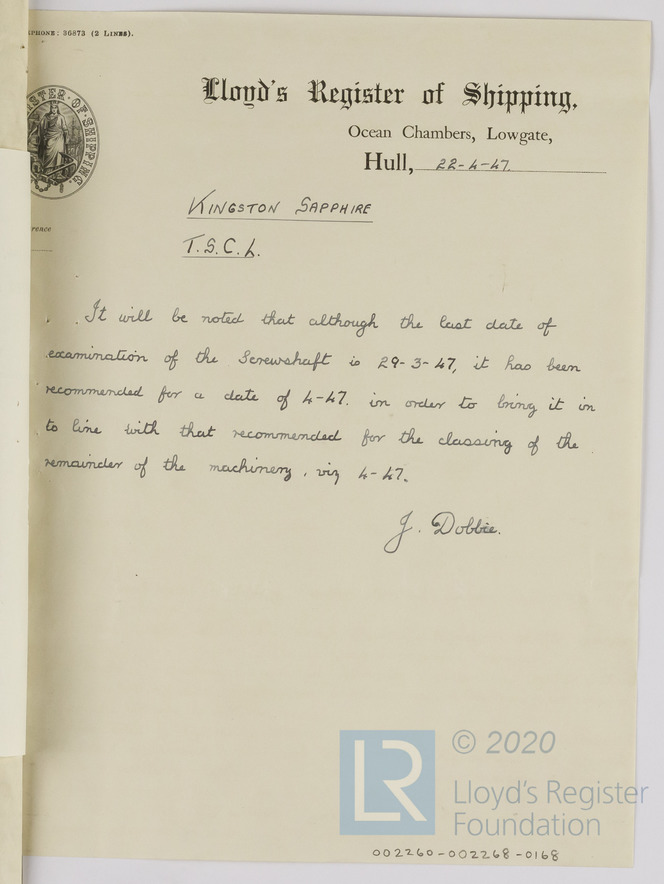 PHONE: 36873 (2 LINES).
Lloyd's Register of Shipping,
Ocean Chambers, Lowgate,
Hull, 22-4-47.
KINGSTON SAPPHIRE
T.S.C.L.
It will be noted that although the last date of
examination of the Screwshaft is 29-3-47, it has been
recommended for a date of 4-47. in order to bring it in
to line with that recommended for the classing of the
remainder of the machinery, viz 4-47.
J. Dobbie.
© 2020
LR
Lloyd's Register
Foundation
002260-002268-0168